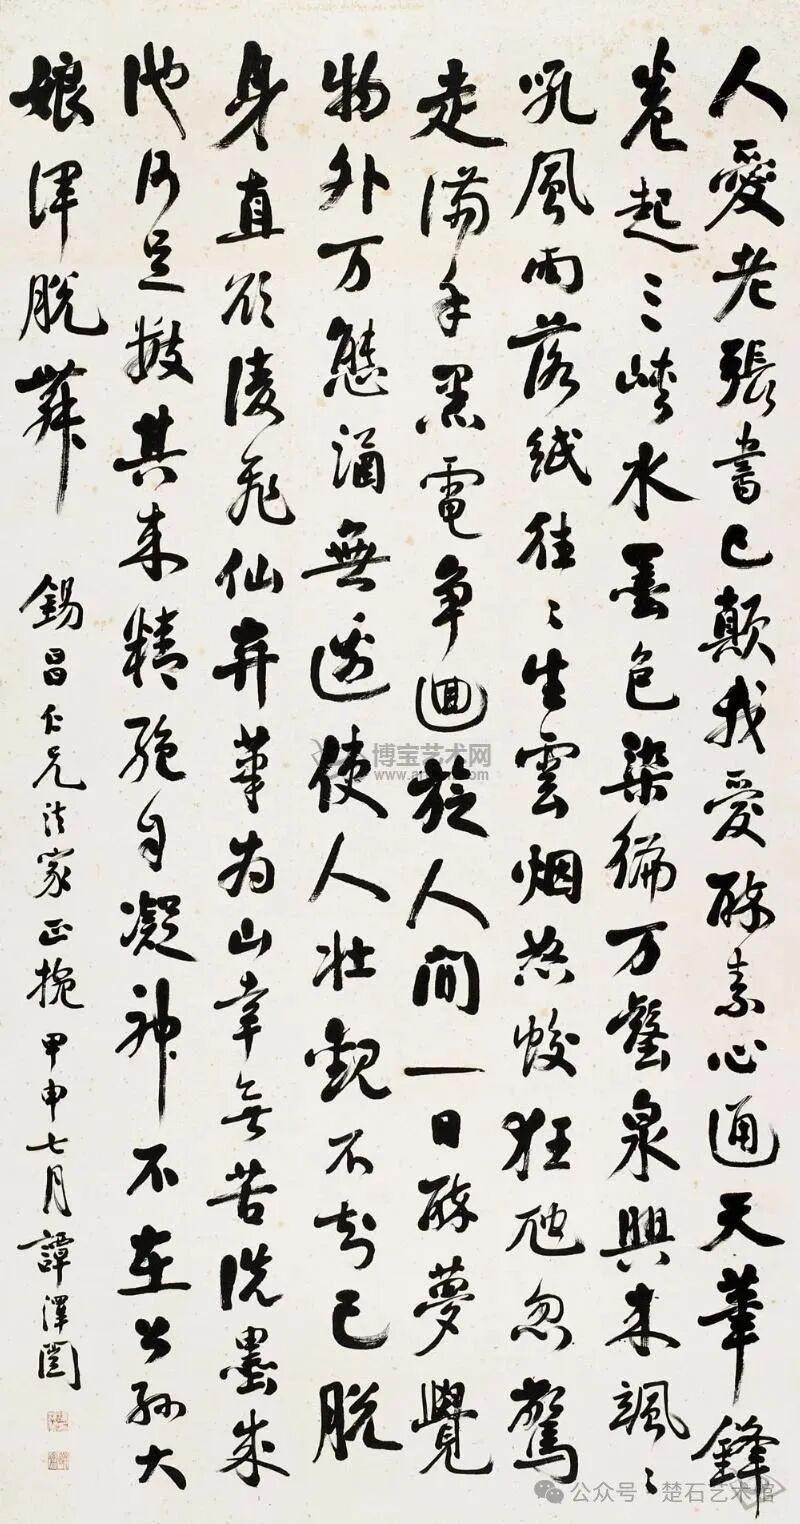 人愛老張書已顛我愛醉素心通天筆鋒
卷起三峽水墨色染徧万壑泉興來颯〻
吼風雨落紙往〻生雲烟怒蛟狂虺忽驚
走滿手黑電爭迴旋人間一日醉夢覺
物外万態涵無邊使人壯觀不知已脫
身直欲淩飛仙弃筆為山幸無苦洗墨成
池何足數其來精絕自凝神不在公孫大
娘渾脫舞
錫昌仁兄法家正捥 甲申七月 譚澤闓
博宝艺术网
公众号·楚石艺术馆